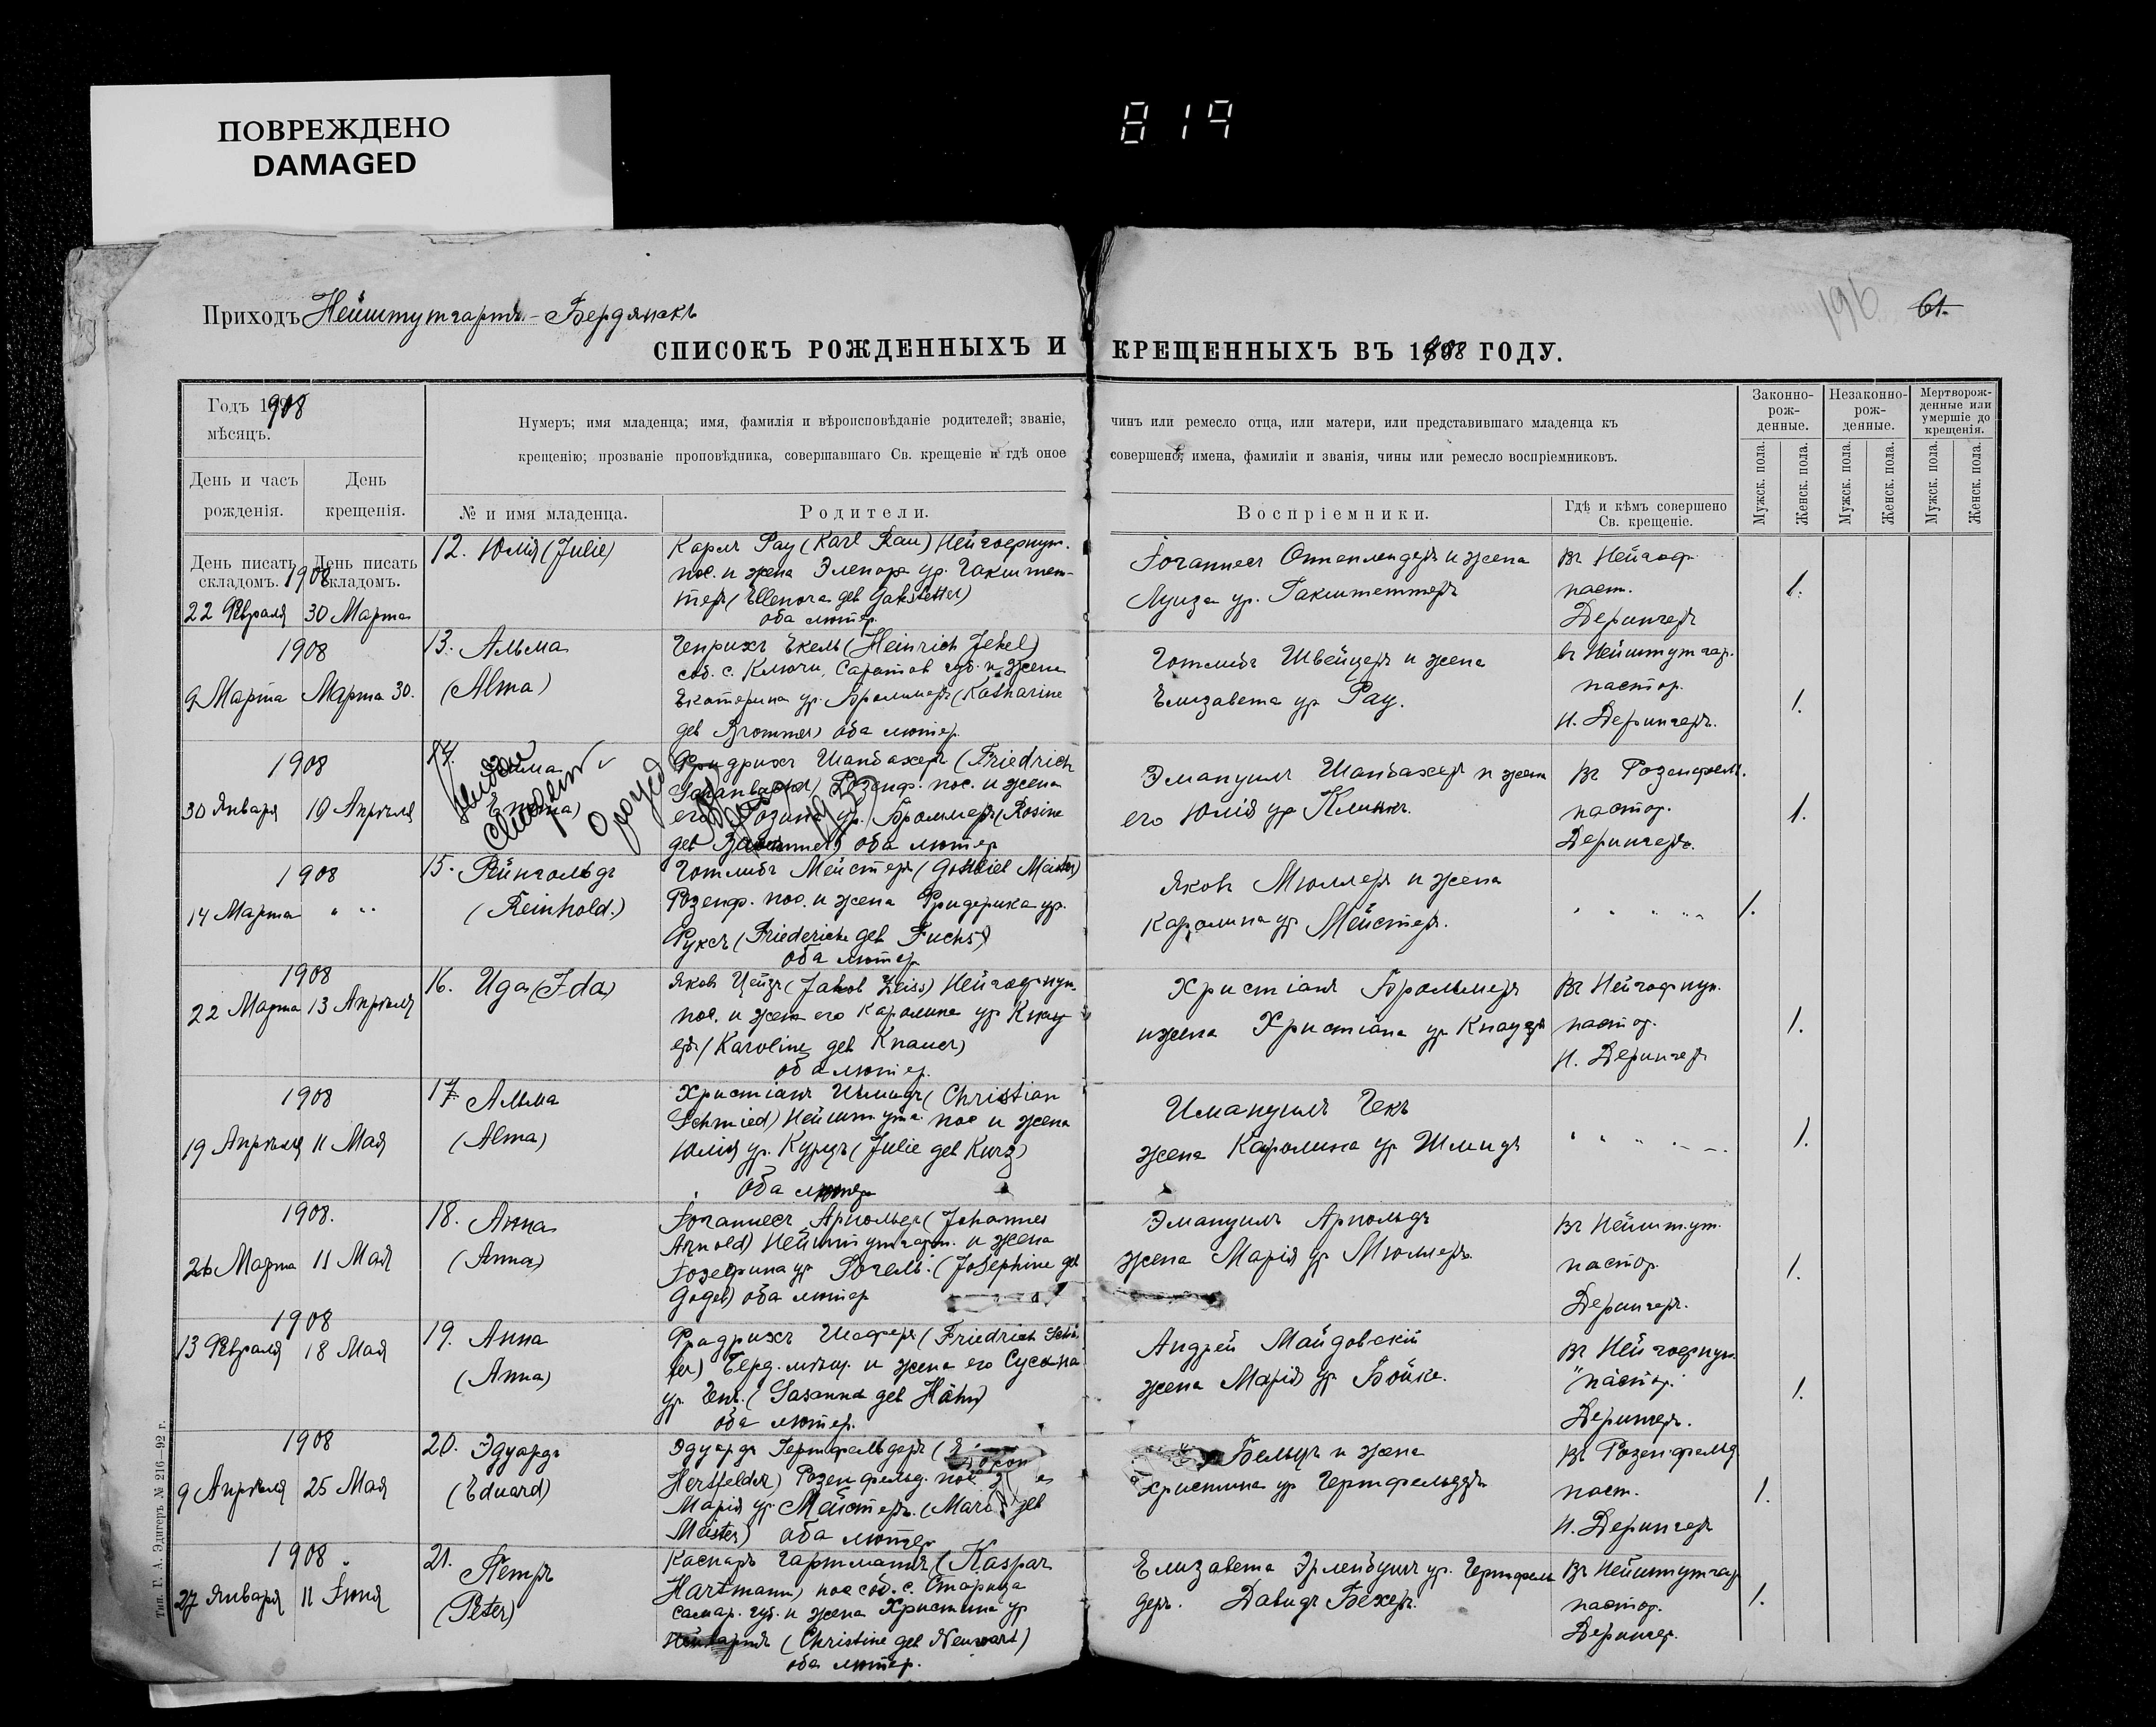 ПОВРЕЖДЕНО
DAMAGED
819
196
61.
Приходъ Нейштутгартъ-Бердянскъ
СПИСОКЪ РОЖДЕННЫХЪ И КРЕЩЕННЫХЪ ВЪ 1908 ГОДУ.
Годъ 1908
мѣсяцъ.
День и часъ рожденія.
День крещенія.
Нумеръ; имя младенца; имя, фамилія и вѣроисповѣданіе родителей; званіе, чинъ или ремесло отца, или матери, или представившаго младенца къ
крещенію; прозваніе проповѣдника, совершавшаго Св. крещеніе и гдѣ оное совершено; имена, фамиліи и званія, чины или ремесло воспріемниковъ.
№ и имя младенца.
Родители.
Воспріемники.
Гдѣ и кѣмъ совершено
Св. крещеніе.
Законно-
рож-
денные.
Незаконно-
рож-
денные.
Мертворож-
денные или
умершіе до
крещенія.
Мужск. пола.
Женск. пола.
Мужск. пола.
Женск. пола.
Мужск. пола.
Женск. пола.
День писать
складомъ.
День писать
складомъ.
1908
22 Февраля
30 Марта
12. Юлія (Julie)
Карлъ Рау (Karl Rau) Нейгофнун.
пос. и жена Элеонора ур. Гакштет-
теръ (Ellenora geb Gakstetter)
оба лютер.
Іоганнесъ Оттенлендеръ и жена
Луиза ур. Гакштеттеръ
Въ Нейгоф.
паст.
Дерингеръ
1.
1908
9 Марта
Марта 30.
13. Альма
(Alma)
Генрихъ Екель (Heinrich Jekel)
соб. с. Ключи, Саратов губ. и жена
Екатерина ур. Броммеръ (Katharine
geb Brommer) оба лютер.
Готлибъ Швейцеръ и жена
Елизавета ур Рау.
въ Нейштутгар.
пастор.
И. Дерингеръ.
1.
1908
30 Января
19 Апрѣля
14.
Фридрихъ Шанбахеръ (Friedrich
Schanbacher) Розенф. пос. и жена
его Розина ур. Броммеръ (Rosine
geb Brommer) оба лютер
Эмануилъ Шанбахеръ и жена
его Юлія ур Клинкъ.
Въ Розенфельд.
пастор.
Дерингеръ.
1.
1908
14 Марта
" "
15. Рейнгольдъ
(Reinhold.)
Готлибъ Мейстеръ (Gottlieb Maister)
Розенф. пос. и жена Фридерика ур.
Фуксъ (Friederike geb Fuchs)
оба лютер
Яковъ Мюллеръ и жена
Каролина ур Мейстеръ.
" " " "
1.
1908
22 Марта
13 Апрѣля
16. Ида (Ida)
Яковъ Цейзъ (Jakob Zeiss) Нейгофнун.
пос. и жена его Каролина ур Кнау
еръ (Karoline geb Knauer)
оба лютер.
Христіанъ Броммеръ
и жена Христіана ур Кнауеръ
Въ Нейгофнун.
пастор.
И. Дерингеръ
1.
1908
19 Апрѣля
11 Мая
17. Альма
(Alma)
Христіанъ Шмидъ (Christian
Schmied) Нейштутг. пос и жена
Юлія ур. Курцъ (Julie geb Kurz)
оба лютер
Имануилъ Гекъ
жена Каролина ур Шмидъ
" " " "
1.
1908.
26 Марта
11 Мая
18. Анна
(Anna)
Іоганнесъ Арнольдъ (Johannes
Arnold) Нейштутгарт. и жена
Іозефина ур Гогель. (Josephine geb
Gogel) оба лютер
Эмануилъ Арнольдъ
жена Марія ур Мюллеръ
Въ Нейштут.
пастор.
Дерингеръ.
1.
1908
13 Февраля
18 Мая
19. Анна
(Anna)
Фридрихъ Шеферъ (Friedrich Schä
fer) Берд. мѣщ. и жена его Сусанна
ур. Генъ. (Susanna geb Hähn)
оба лютер.
Андрей Майдовскій
жена Марія ур Бойко.
Въ Нейгофнун.
" пастор.
Дерингеръ.
1.
1908
9 Апрѣля
25 Мая
20. Эдуардъ
(Eduard)
Эдуардъ Гертфельдеръ (
Hertfelder) Розенфельд. пос.
Марія ур Мейстеръ. (Mari geb
Meister) оба лютер
Бельцъ и жена
Христина ур Гертфельдеръ
Въ Розенфельд
паст.
И. Дерингеръ
1.
1908
27 Января
11 Іюня
21. Петръ
(Peter)
Каспаръ Гартманъ (Kaspar
Hartmann) пос соб. с. Старица
Самар. губ. и жена Христина ур
Нейвартъ (Christine geb Neuwart)
оба лютер.
Елизавета Эрленбушъ ур. Гертфель
деръ. Давидъ Бехеръ.
Въ Нейштутгар
пастор.
Дерингер.
1.
Тип. Г. А. Эдигеръ № 216—92 г.